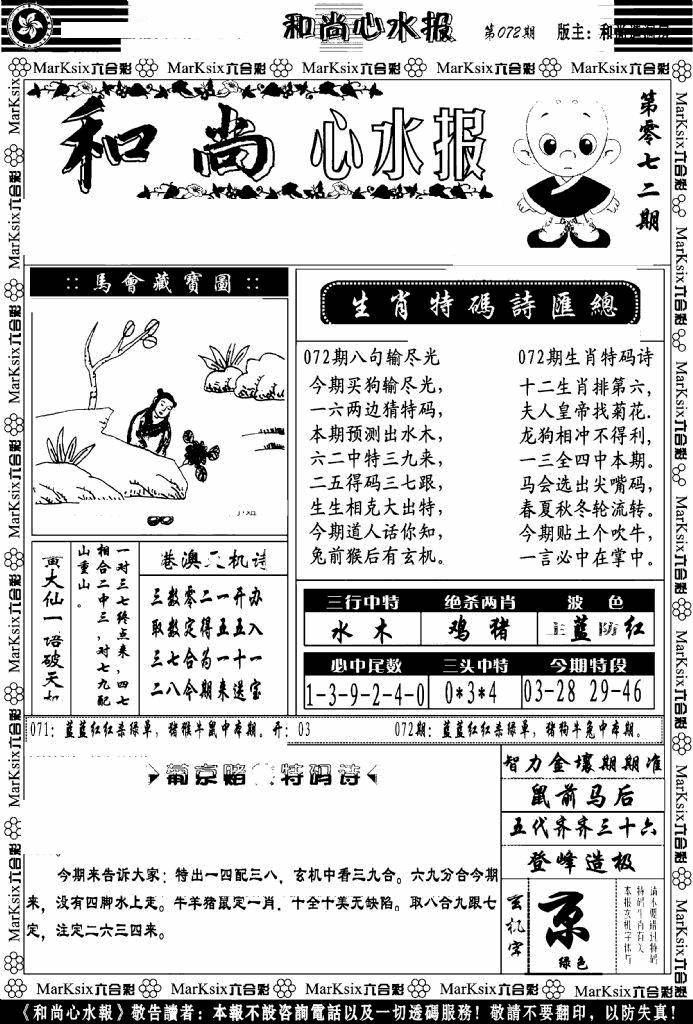 和尚心水报 第072期 版主：和
MarKsix六合彩 MarKsix六合彩 MarKsix六合彩 MarKsix六合彩 MarKsix六合彩
和尚心水报
第零七二期
::馬會藏寶圖::
生肖特碼詩匯總
072期八句输尽光
今期买狗输尽光，
一六两边猜特码，
本期预测出水木，
六二中特三九来，
二五得码三七跟，
生生相克大出特，
今期道人话你知，
兔前猴后有玄机。
072期生肖特码诗
十二生肖排第六，
夫人皇帝找菊花.
龙狗相冲不得利，
一三全四中本期。
马会选出尖嘴码，
春夏秋冬轮流转。
今期贴土个吹牛，
一言必中在掌中。
黄大仙一语破天
一对三七终点来，四七
相合二中三，对七九配
山重山。
港澳天机诗
三数零二一开办
取数定得五五入
三七合为一十一
二八今期来送宝
三行中特 绝杀两肖 波色
水木 鸡猪 主蓝防红
必中尾数 三头中特 今期特段
1-3-9-2-4-0 0*3*4 03-28 29-46
071：蓝蓝红红杀绿单，猪猴牛鼠中本期。开：03
072期：蓝蓝红红杀绿单，猪狗牛兔中本期。
葡京赌 特码诗
今期来告诉大家：特出一四配三八，玄机中看三九合。六九分合今期
来，没有四脚水上走。牛羊猪鼠定一肖，十全十美无缺陷。取八合九跟七
定，注定二六三四来。
智力金壤期期准
鼠前马后
五代齐齐三十六
登峰造极
玄机字
京
绿色
MarKsix六合彩 MarKsix六合彩 MarKsix六合彩 MarKsix六合彩 MarKsix六合彩
《和尚心水報》敬告讀者：本報不設咨詢電話以及一切透碼服務！敬請不要翻印，以防失真！